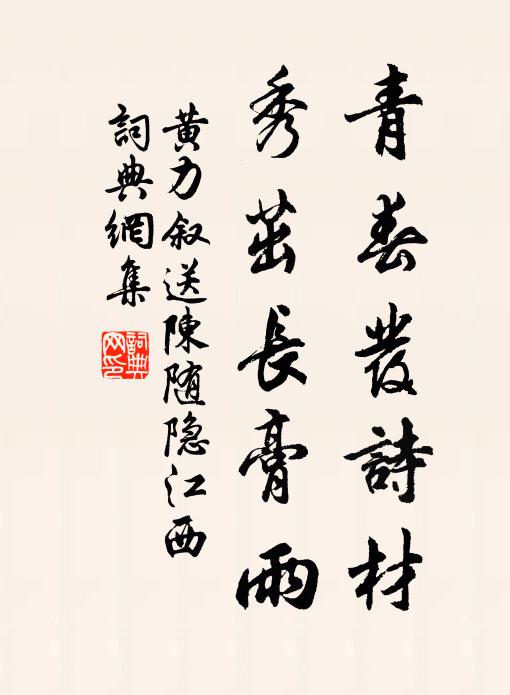 青春發詩材
秀茁長膏雨
黃力敘送陳随隐江西
詞典網集
詞典網印